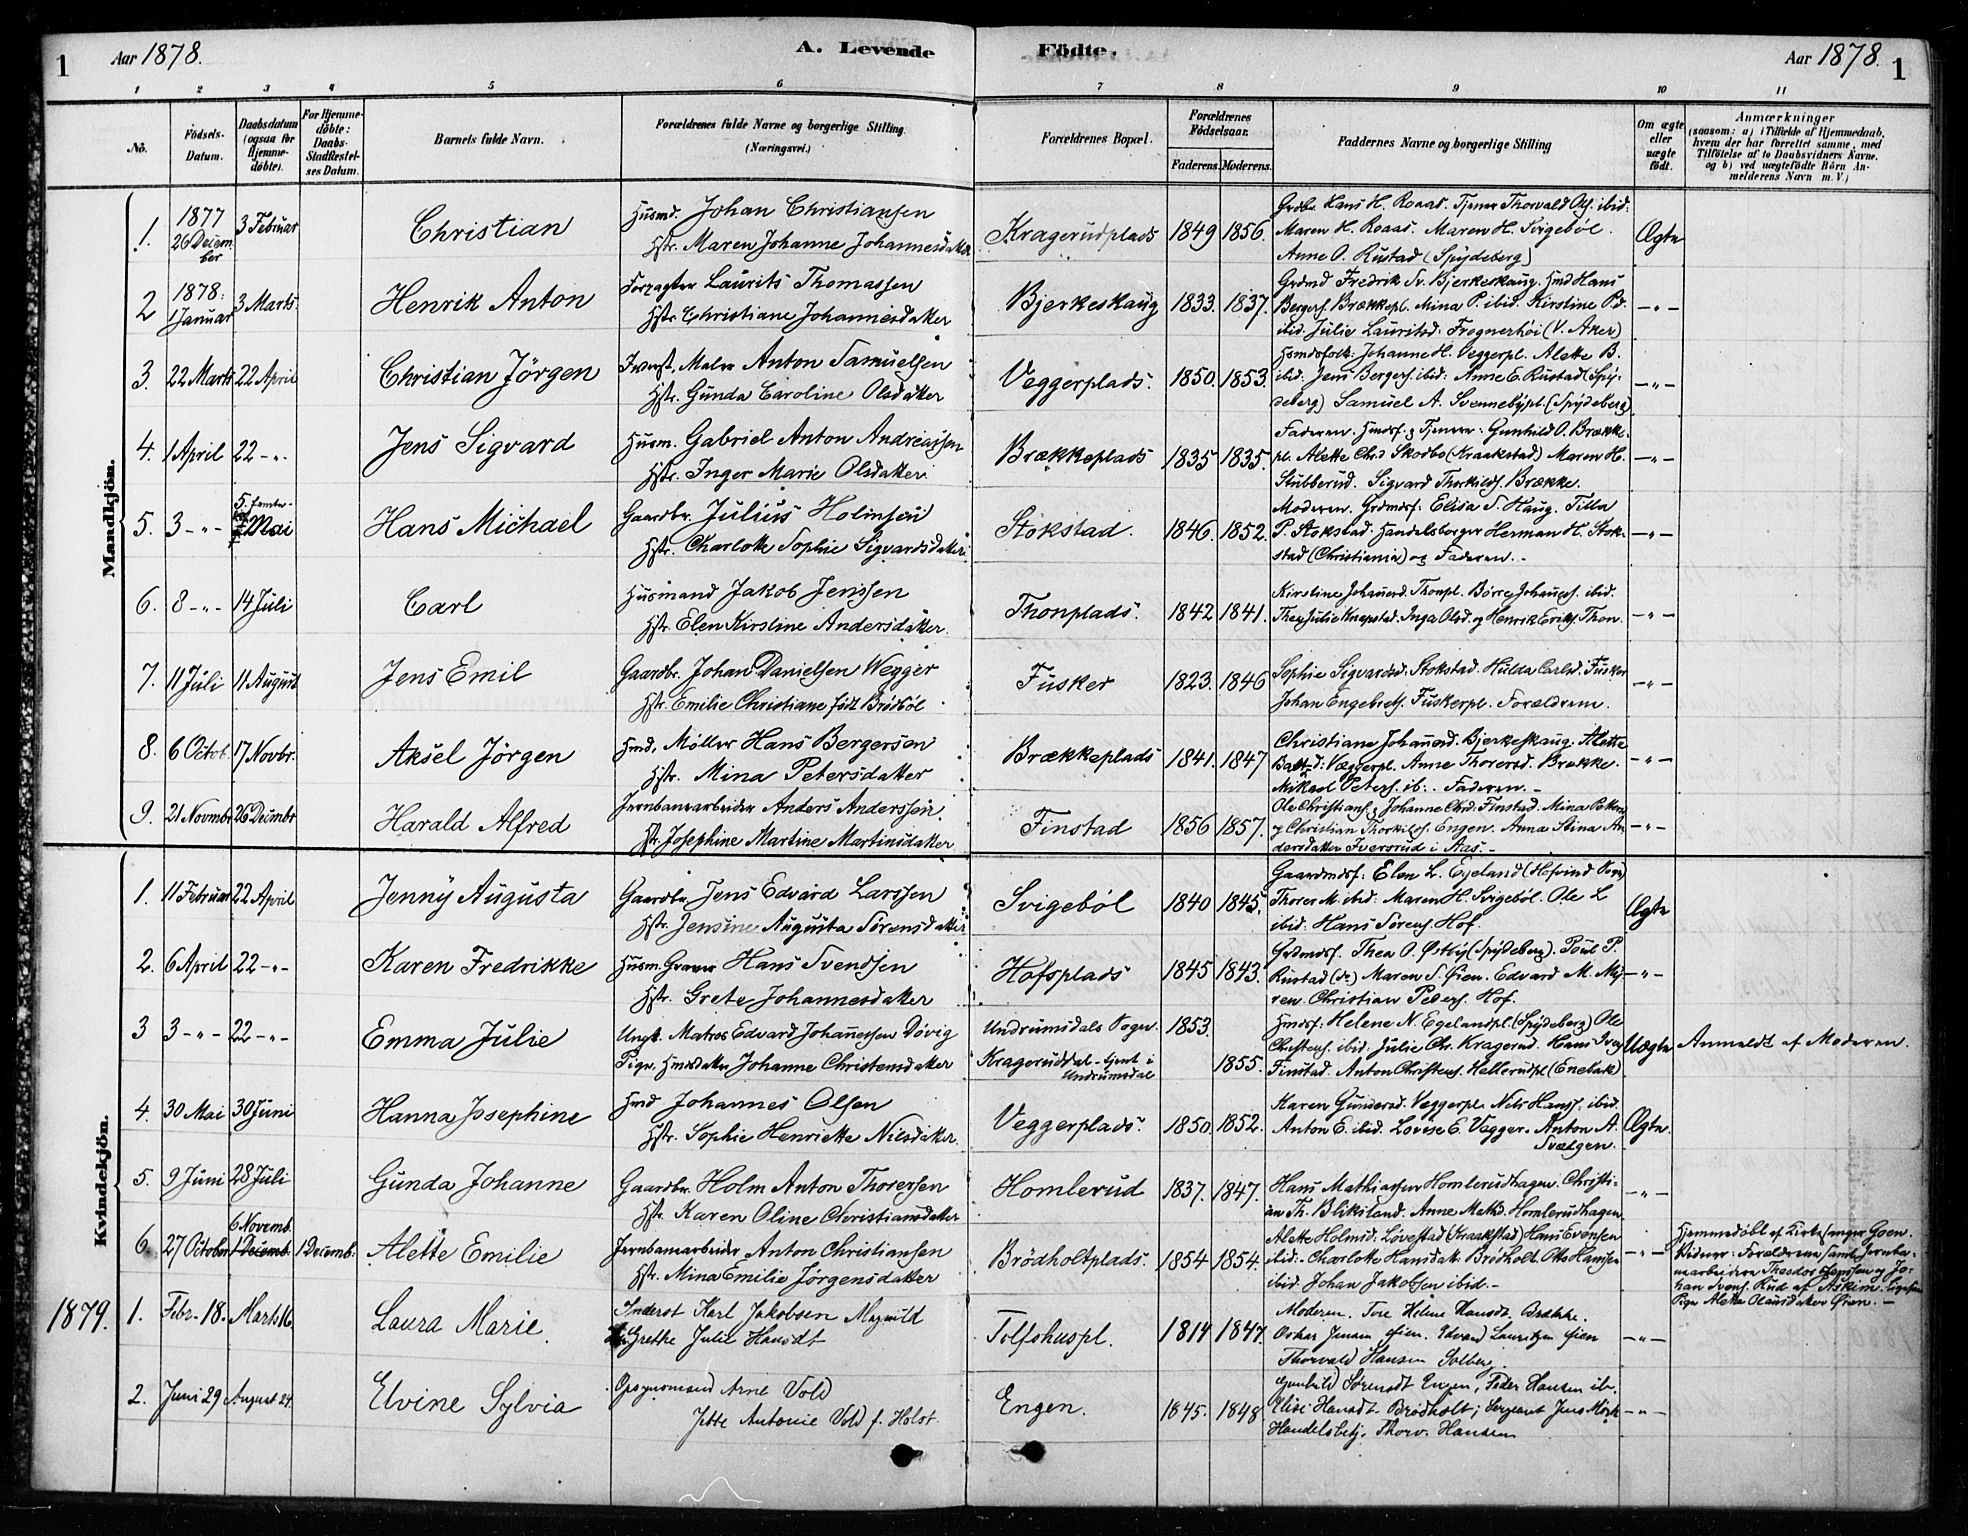 1 Aar 1878. A. Levende Födte. Aar 1878. 1
1 2 3 4 5 6 7 8 9 10 11
No. Födsels-Datum. Daabsdatum (ogsaa for Hjemmedöbte). For Hjemmedöbte: Daabs-Stadfæstelses Datum. Barnets fulde Navn. Forældrenes fulde Navne og borgerlige Stilling. (Næringsvei.) Forældrenes Bopæl. Forældrenes Födselsaar. Faderens. Moderens. Faddernes Navne og borgerlige Stilling Om ægte eller uægte födt. Anmærkninger (saasom: a) i Tilfælde af Hjemmedaab, hvem der har forrettet samme, med Tilföielse af to Daabsvidners Navne, og b) ved uægtefödte Börn Anmelderens Navn m. V.)
Mandkjön.
1. 1877 26 Decem-ber 3 Februar Christian Husmd. Johan Christiansen
Hstr. Maren Johanne Johannesdatter Kragerudplads 1849 1856. Ægte
Grdbr. Hans H. Roaas. Tjener Thorvald Ols. ibid:
Maren H. Roaas. Maren H. Svigebøl.
Anne O. Rustad (Spydeberg)
2 1878: 1 Januar 3 Marts. Henrik Anton Forpagter Laurits Thomassen
Hstr. Christiane Johannesdatter Bjerkeskaug 1833. 1837. —"—
Grdmd Fredrik Sv. Bjerkeskaug. Hmd Hans
Bergers. Brækkepl. Mina P. ibid. Kirstine P.d.
ibid. Julie Lauritsd: Frognerhöi (V. Aker)
3. 22 Marts 22 April Christian Jörgen Inderst. Maler Anton Samuelsen
Hstr. Gunda Caroline Olsdatter Veggerplads. 1850. 1853. —"—
Hsmdsfolk: Johanne H. Veggerpl. Alette B.
ibid. Jens Bergers. ibid: Anne E. Rustad (Spy-
deberg) Samuel A. Svennebypl. (Spydeberg)
4. 1 April 22 -"- Jens Sigvard Husm. Gabriel Anton Andreassen
Hstr. Inger Marie Olsdatter. Brækkeplads 1835 1835. —"—
Faderen. Hmdsf. & Tjenere: Gunhild O. Brække-
pl. Alette Chr.d Skodbo (Kraakstad) Maren H.
Stubberud. Sigvard Thorkilds. Brække.
5. 3 -"- Mai Hans Michael Gaardbr. Julius Holmsen
Hstr. Charlotte Sophie Sigvardsdatter Stokstad. 1846. 1852. —"—
Moderen. Grdmdsf: Elisa S. Haug. Tilla
P. Stokstad. Handelsborger Herman H. Stok-
stad (Christiania) og Faderen.
6. 8 -"- 14 Juli Carl Husmand Jakob Jenssen
Hstr. Elen Kirstine Andersdatter. Thonplads. 1842 1841. —"—
Kirstine Johannesd. Thonpl. Börre Johannes. ibid.
Thea Julie Knapstad. Inga Olsd. og Henrik Eriks. Thon.
7. 11 Juli 11 August Jens Emil Gaardbr. Johan Danielsen Wegger
Hstr. Emilie Christiane født Brödböl Fusker 1823. 1846 —"—
Sophie Sigvardsd. Stokstad. Hulda Carlsd. Fusker
Johan Engebrets. Fuskerpl. Forældrene.
8. 6 Octob. 17 Novbr. Aksel Jörgen Hmd. Möller Hans Bergersen
Hstr. Mina Petersdatter Brækkeplads 1841. 1847 —"—
Christiane Johannesd. Bjerkeskaug. Alette
Væggerpl. Anne Thorersd. Brække.
Mikael Peters. ib. Faderen.
9. 21 Novmbr. 26 Decmbr Harald Alfred Jernbanearbeider Anders Anderssen.
Hstr. Josephine Martine Martinsdatter Finstad 1856 1857. —"—
Ole Christians. & Johanne Chrd. Finstad. Mina Peters.
og Christian Thorkilds. Engen. Anna Stina An-
dersdatter Sversrud i Aas.
Kvindekjön.
1. 11 Februar 22 April Jenny Augusta Gaardbr. Jens Edvard Larssen
Hstr. Jensine Augusta Sörensdatter Svigeböl 1840 1845. Ægte
Gaardmdsf: Elen L. Egeland (Hofvind
Thorer M. ibid: Maren H. Svigeböl. Ole L
ibid: Hans Sörens. Hof.
2. 6 April 22 -"- Karen Fredrikke Husm. Graver Hans Svendsen
Hstr. Grete Johannesdatter Hofsplads 1845 1843. —"—
Grdmdsf. Thea O. Østby (Spydeberg). Poul P.
Rustad (do) Maren S. Øien. Edvard M. My-
ren. Christian Peders. Hof.
3 3 -"- 22 -"- Emma Julie Ungk. Matros Edvard Johannessen Dövig
Pige, Hmdsdatter Johanne Christensdatter Undrumsdals Sogn.
Krageruddal - tjent i Undrumsdal 1853. 1855. Uægte Anmeldt af Moderen.
Hmdsf: Helene N. Egelandpl. (Spydeberg) Ole
Christens. ibid. Julie Chr. Kragerud. Hans
Finstad. Anton Christens. Hellerudpl (Enebak)
4. 30 Mai 30 Juni Hanna Josephine Hmd Johannes Olsen
Hstr. Sophie Henriette Nilsdatter. Veggerplads. 1850. 1852. Ægte.
Karen Gundersd. Veggerpl. Nils Hanss. ibid.
Anton E. ibid. Lovise E. Vegger. Anton A.
Svælgen.
5. 9 Juni 28 Juli Gunda Johanne Gaardbr. Holm Anton Thorersen
Hstr. Karen Oline Christiansdatter Homlerud 1837. 1847. —"—
Hans Mathiassen Homlerudhagen. Christi-
an Th. Bliksland. Anne Mathd. Homlerudhagen
6. 27 October 6 Novemb. 1 Decemb. 1 Decemb: Alette Emilie Jernbanearbeider Anton Christiansen
Hstr. Mina Emilie Jörgensdatter Brödholtplads. 1854 1854. —"—
Alette Holmsd. Lövestad (Kraakstad) Hans Evensen
ibid. Charlotte Hansdatt. Brödholt. Otto Hanssen
ibid. Johan Jakobsen ibid.
Hjemmedöbt af Kirkesanger Goen.
Vidner: Forældrene samt Jernba-
nearbeidere Theodor Jenssen og Jo-
han Svens. Rud af Askim.
Pige Alette Olausdatter Øien.
1879. 1. Febr. 18. Marts 16 Laura Marie. Inderst Karl Jakobsen
Grethe Julie Hansdt Tolfshuspl. 1814 1847. —"—
Moderen. Tore Helene Hansdt. Brække.
Oskar Jensen Øien. Edvard Lauritzen Øien
Thorvald Hansen Solberg.
2. Juni 29 August 24. Elvine Sylvia Opsynsmand Arne Vold
Jette Antonie Vold f. Holst. Engen. 1845. 1848 —"—
Gunhild Sörensdt Engen, Peder Hansen ib.
Elise Hansdt Brödholt; Sergeant Jens Mörk
Handelsbetj. Thorv. Hansen